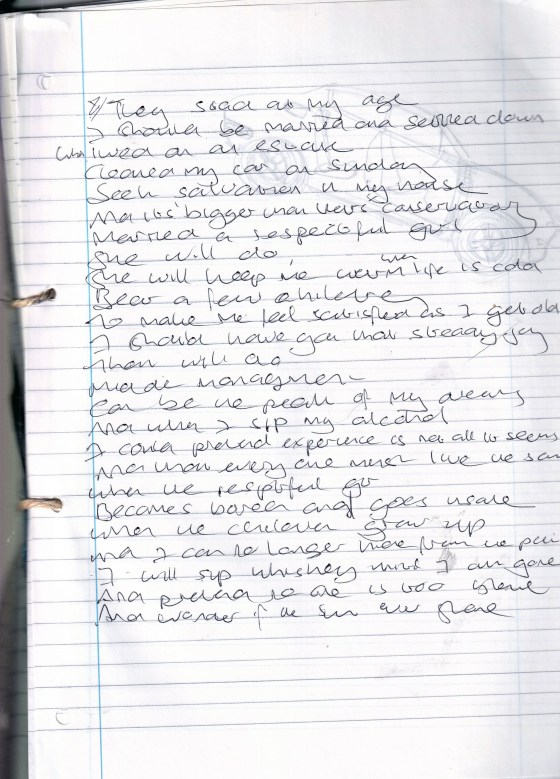 They said at my age
I should be married and settled down
Lived on an estate
Cleaned my car on Sunday
Seek salvation in my house
And its bigger than hers conservatory
Married a respectful girl
She will do
She will keep me warm when life is cold
Bear a few children
To make me feel satisfied as I get old
I should have got that steady job
That will do
Made management
Can be the peak of my dreams
And when I sip my alcohol
I could pretend experience is not all it seems
And that everyone must live the same
When the respectful girl
Becomes bored and goes
When the children grow up
And I can no longer hide from the pain
I will sip whiskey until I am gone
And pretend no one is to blame
And wonder if the sun ever shone